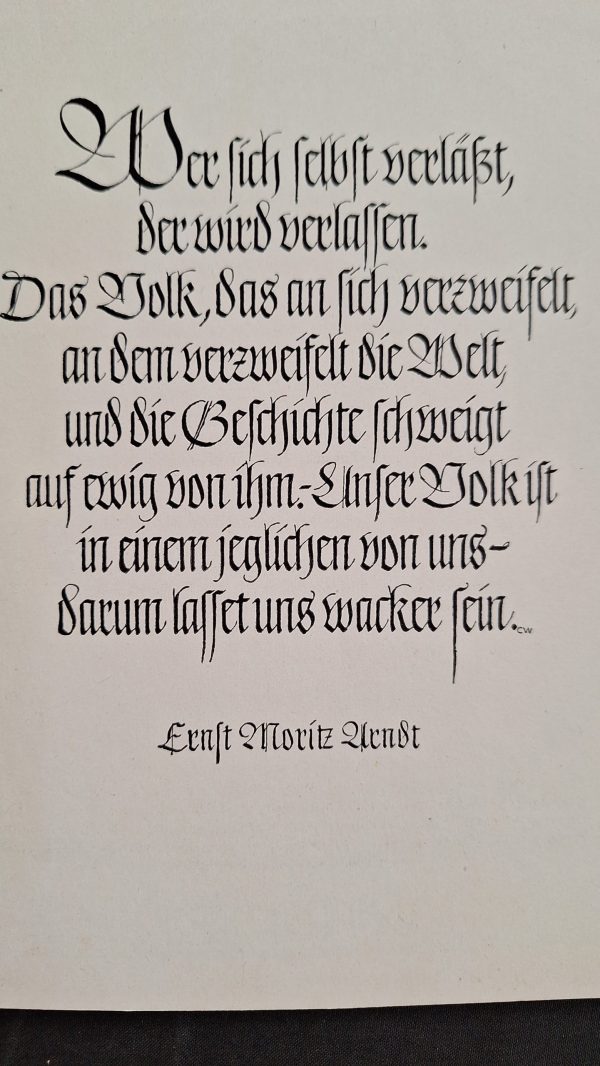 Wer sich selbst verläßt,
der wird verlassen.
Das Volk, das an sich verzweifelt,
an dem verzweifelt die Welt,
und die Geschichte schweigt
auf ewig von ihm.- Unser Volk ist
in einem jeglichen von uns-
darum lasset uns wacker sein. CW
Ernst Moritz Arndt